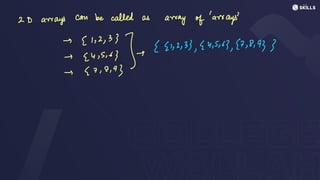 2D arrays can be called as array of 'arrays'
→ {1,2,3}
→ {4,5,6}
→ {7,8,9}
→ { {1,2,3}, {4,5,6}, {7,8,9} }
SKILLS
COLLEGE
WALLAH